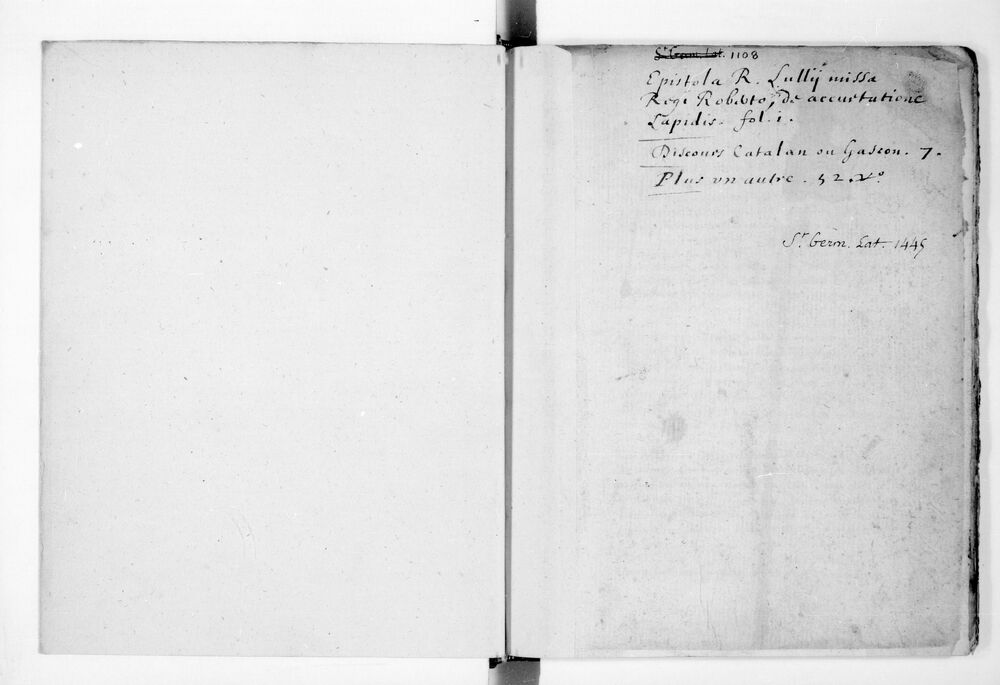 St Germ. Lat. 1108
Epistola R. Lullij missa
Regi Roberto, de accurtatione
Lapidis. fol. i.
Discours Catalan ou Gascon. 7.
Plus vn autre. 52. vº.
St. Germ. Lat. 1445